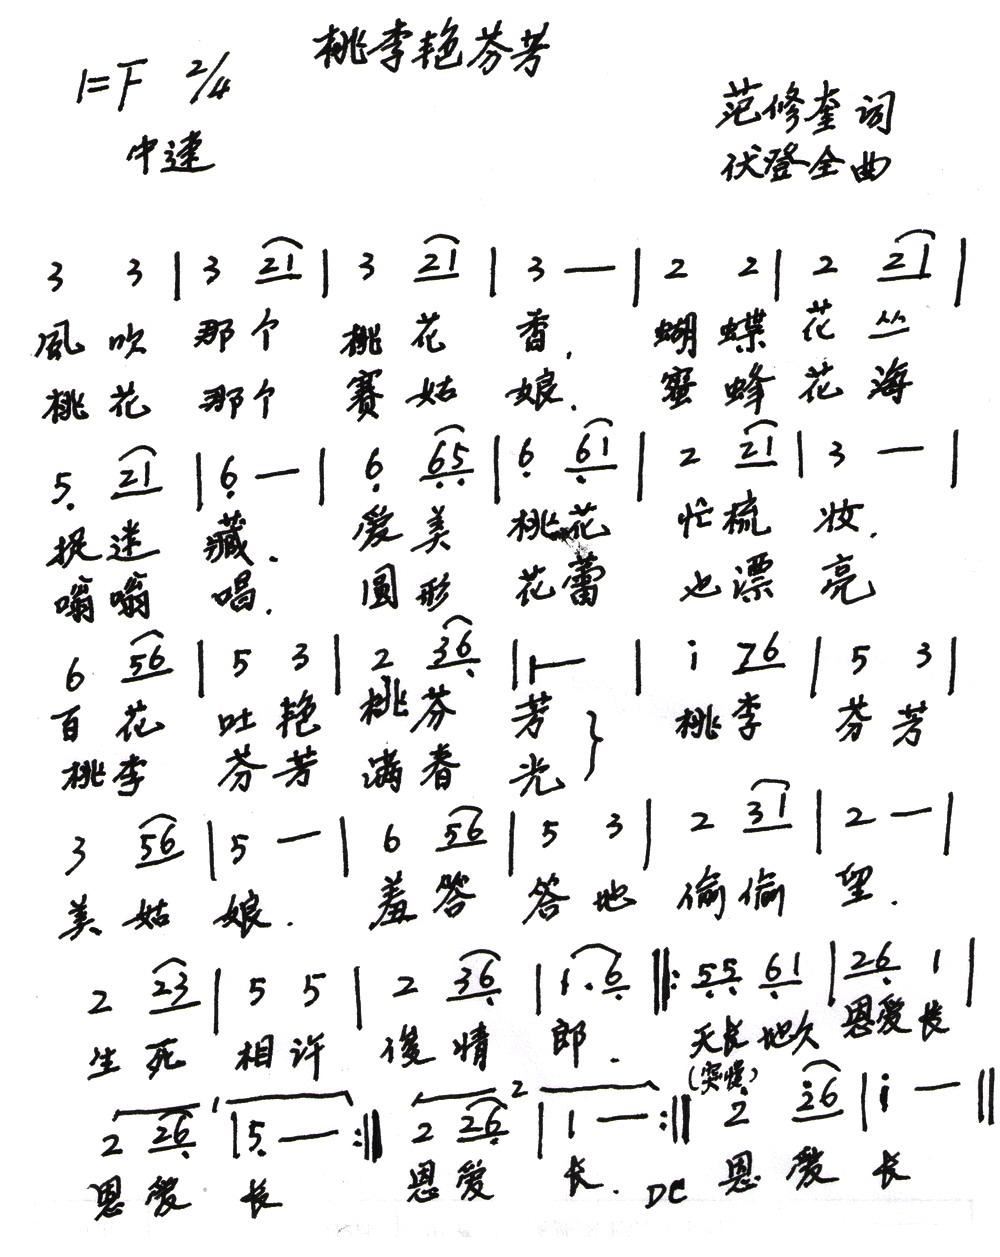 桃李艳芬芳
1=F 2/4
中速
范修奎 词
伏登全 曲
3 3 | 3 21 | 3 21 | 3 — | 2 2 | 2 21 |
風吹 那个 桃花 香. 蝴蝶 花丛
桃花 那个 赛姑 娘. 蜜蜂 花海
5 21 | 6 — | 6 65 | 6 61 | 2 21 | 3 — |
捉迷 藏. 爱美 桃花 忙梳 妆.
嗡嗡 唱. 圆形 花蕾 也漂 亮
6 56 | 5 3 | 2 36 | 1 — | i 76 | 5 3 |
百花 吐艳 桃芬 芳 } 桃李 芬芳
桃李 芬芳 满春 光
3 56 | 5 — | 6 56 | 5 3 | 2 31 | 2 — |
美姑 娘. 羞答 答地 偷偷 望.
2 23 | 5 5 | 2 36 | 1. 6 ‖: 55 61 | 26 1 |
生死 相许 俊情 郎. 天长地久 恩爱长
(突慢)
2 26 | 5 — :‖ 2 26 | 1 — :‖ 2 26 | i — ‖
恩爱 长 恩爱 长. DC 恩爱 长